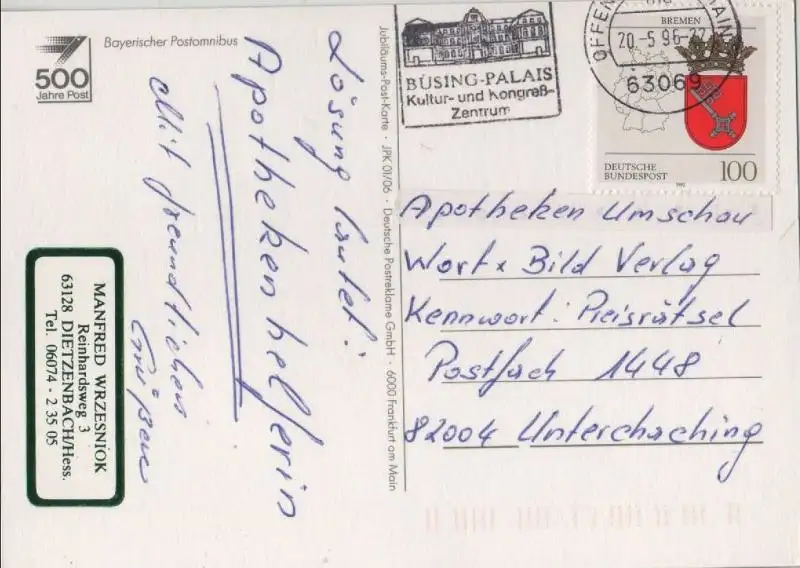 500
Jahre Post
Bayerischer Postomnibus
Lösung lautet:
Apothekenhelferin
Mit freundlichen
Grüßen
MANFRED WRZESNIOK
Reinhardsweg 3
63128 DIETZENBACH/Hess.
Tel. 06074 - 2 35 05
Jubiläums-Post-Karte · JPK 01/06 · Deutsche Postreklame GmbH · 6000 Frankfurt am Main
BÜSING-PALAIS
Kultur- und Kongreß-
Zentrum
OFFEN MAIN
20.-5.96-22
63069
BREMEN
DEUTSCHE
BUNDESPOST
1992
100
Apotheken Umschau
Wort x Bild Verlag
Kennwort: Preisrätsel
Postfach 1448
82004 Unterchaching